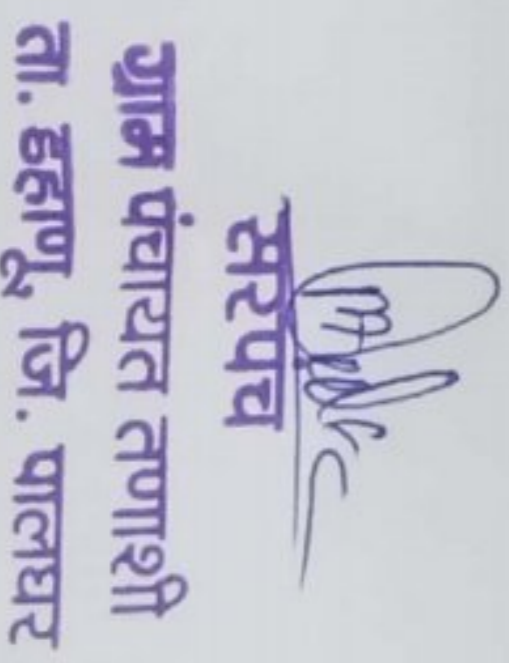 सरपंच
ग्राम पंचायत तणाशी
ता. डहाणू, जि. पालघर